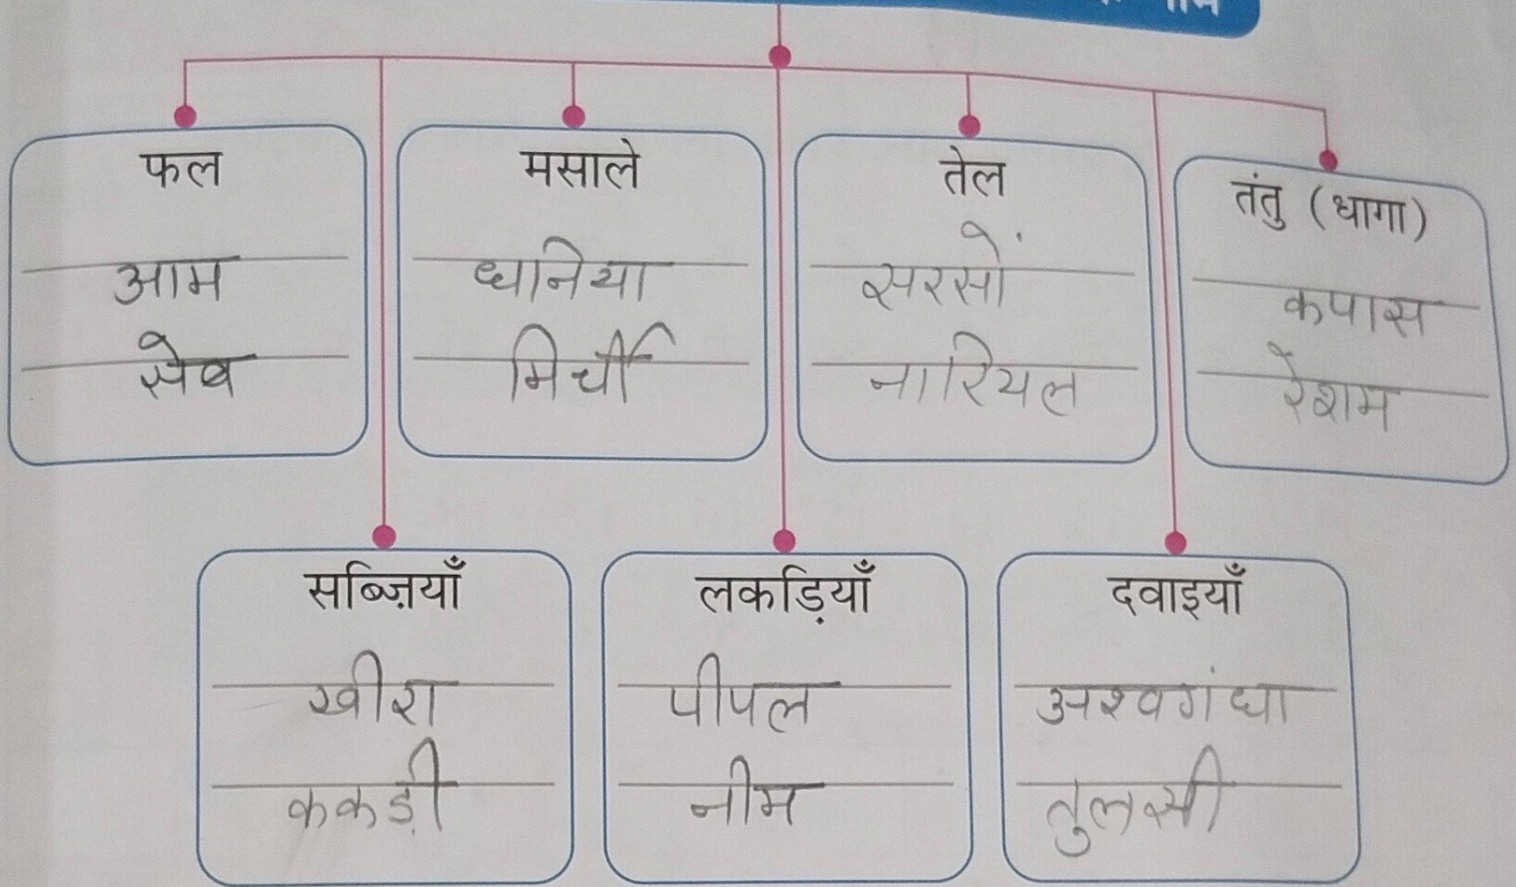 नाम
फल
आम
सेब
मसाले
धानिया
मिर्ची
तेल
सरसों
नारियल
तंतु (धागा)
कपास
रेशम
सब्ज़ियाँ
खीरा
ककड़ी
लकड़ियाँ
पीपल
नीम
दवाइयाँ
अश्वगंधा
तुलसी